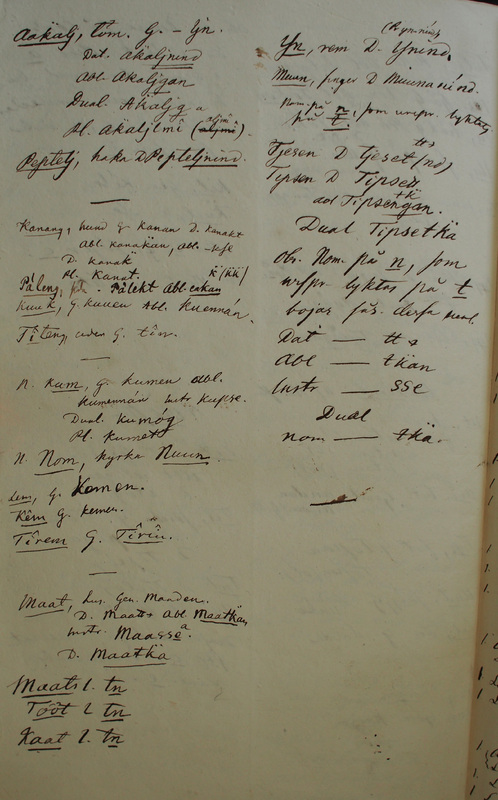 Aäkälj, töm. G. - ljn.
Dat. Akäljnind
Abl. Akäljgan
Dual. Akäljg a
Pl. akäljtmi (aljmi).
Peptelj, haka D Pepteljnind.
Kanang, hund G kanan D. kanakt
abl. kanakän, abl.
D. kanak
Pl. kanat. k (kk)
Päleng, Pälekt abl. eakan
kuuk, G. kuuen Abl. kuennán.
Titeng, G. tin.
n. kum, G. kumen abl.
kumennán instr kupse.
Dual. kumóg
Pl. kumät
n. Nom, kyrka Nuun.
G. Komen.
Kêm G. kemen.
Tirem G. Tiriu.
Maat, hus. Gen. Maaden.
D. Maatt Abl. Maatkän
instr. Maasse.
D. Maatkä
Maats l. tn
Tööt l tn
Kaat l. tn
Yn, rem D. Ynind.
Muun, finger D Muunanind.
Nom. på n, som urspr. lyktats
på t.
Tjesen D Tjeset (nd)
Tipsen D Tipset
abl Tipsengan.
Dual Tipsetkä
obs. Nom. på n, som
urspr lyktas på t
bojas sås.
Dat — tt
Abl — tkan
Instr — sse
Dual
nom — tkä.